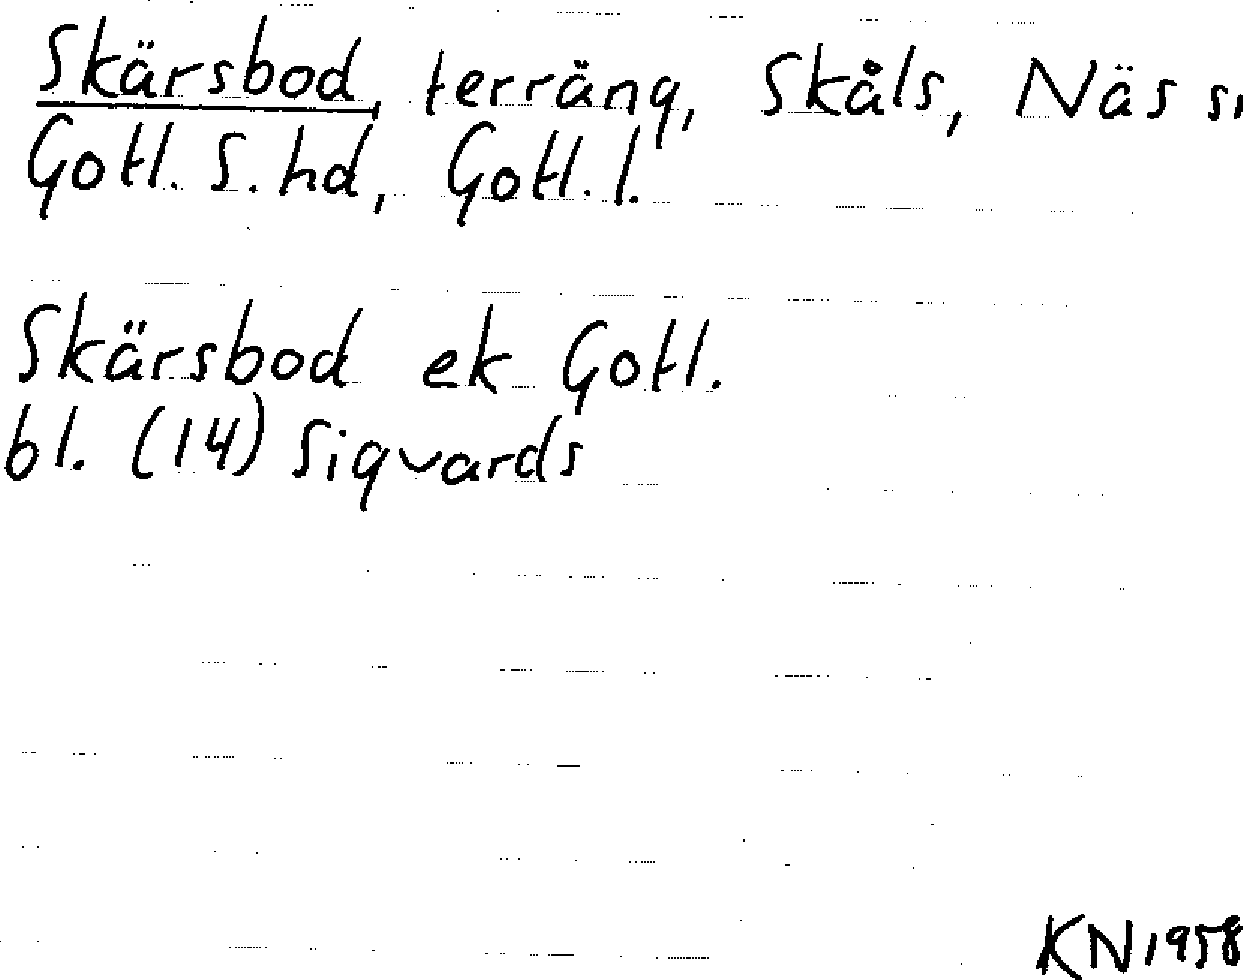 Skärsbod, terräng, Skåls, Näs s,
Gotl. S. hd, Gotl. l.
Skärsbod ek Gotl.
bl. (14) Sigvards
KN 1958